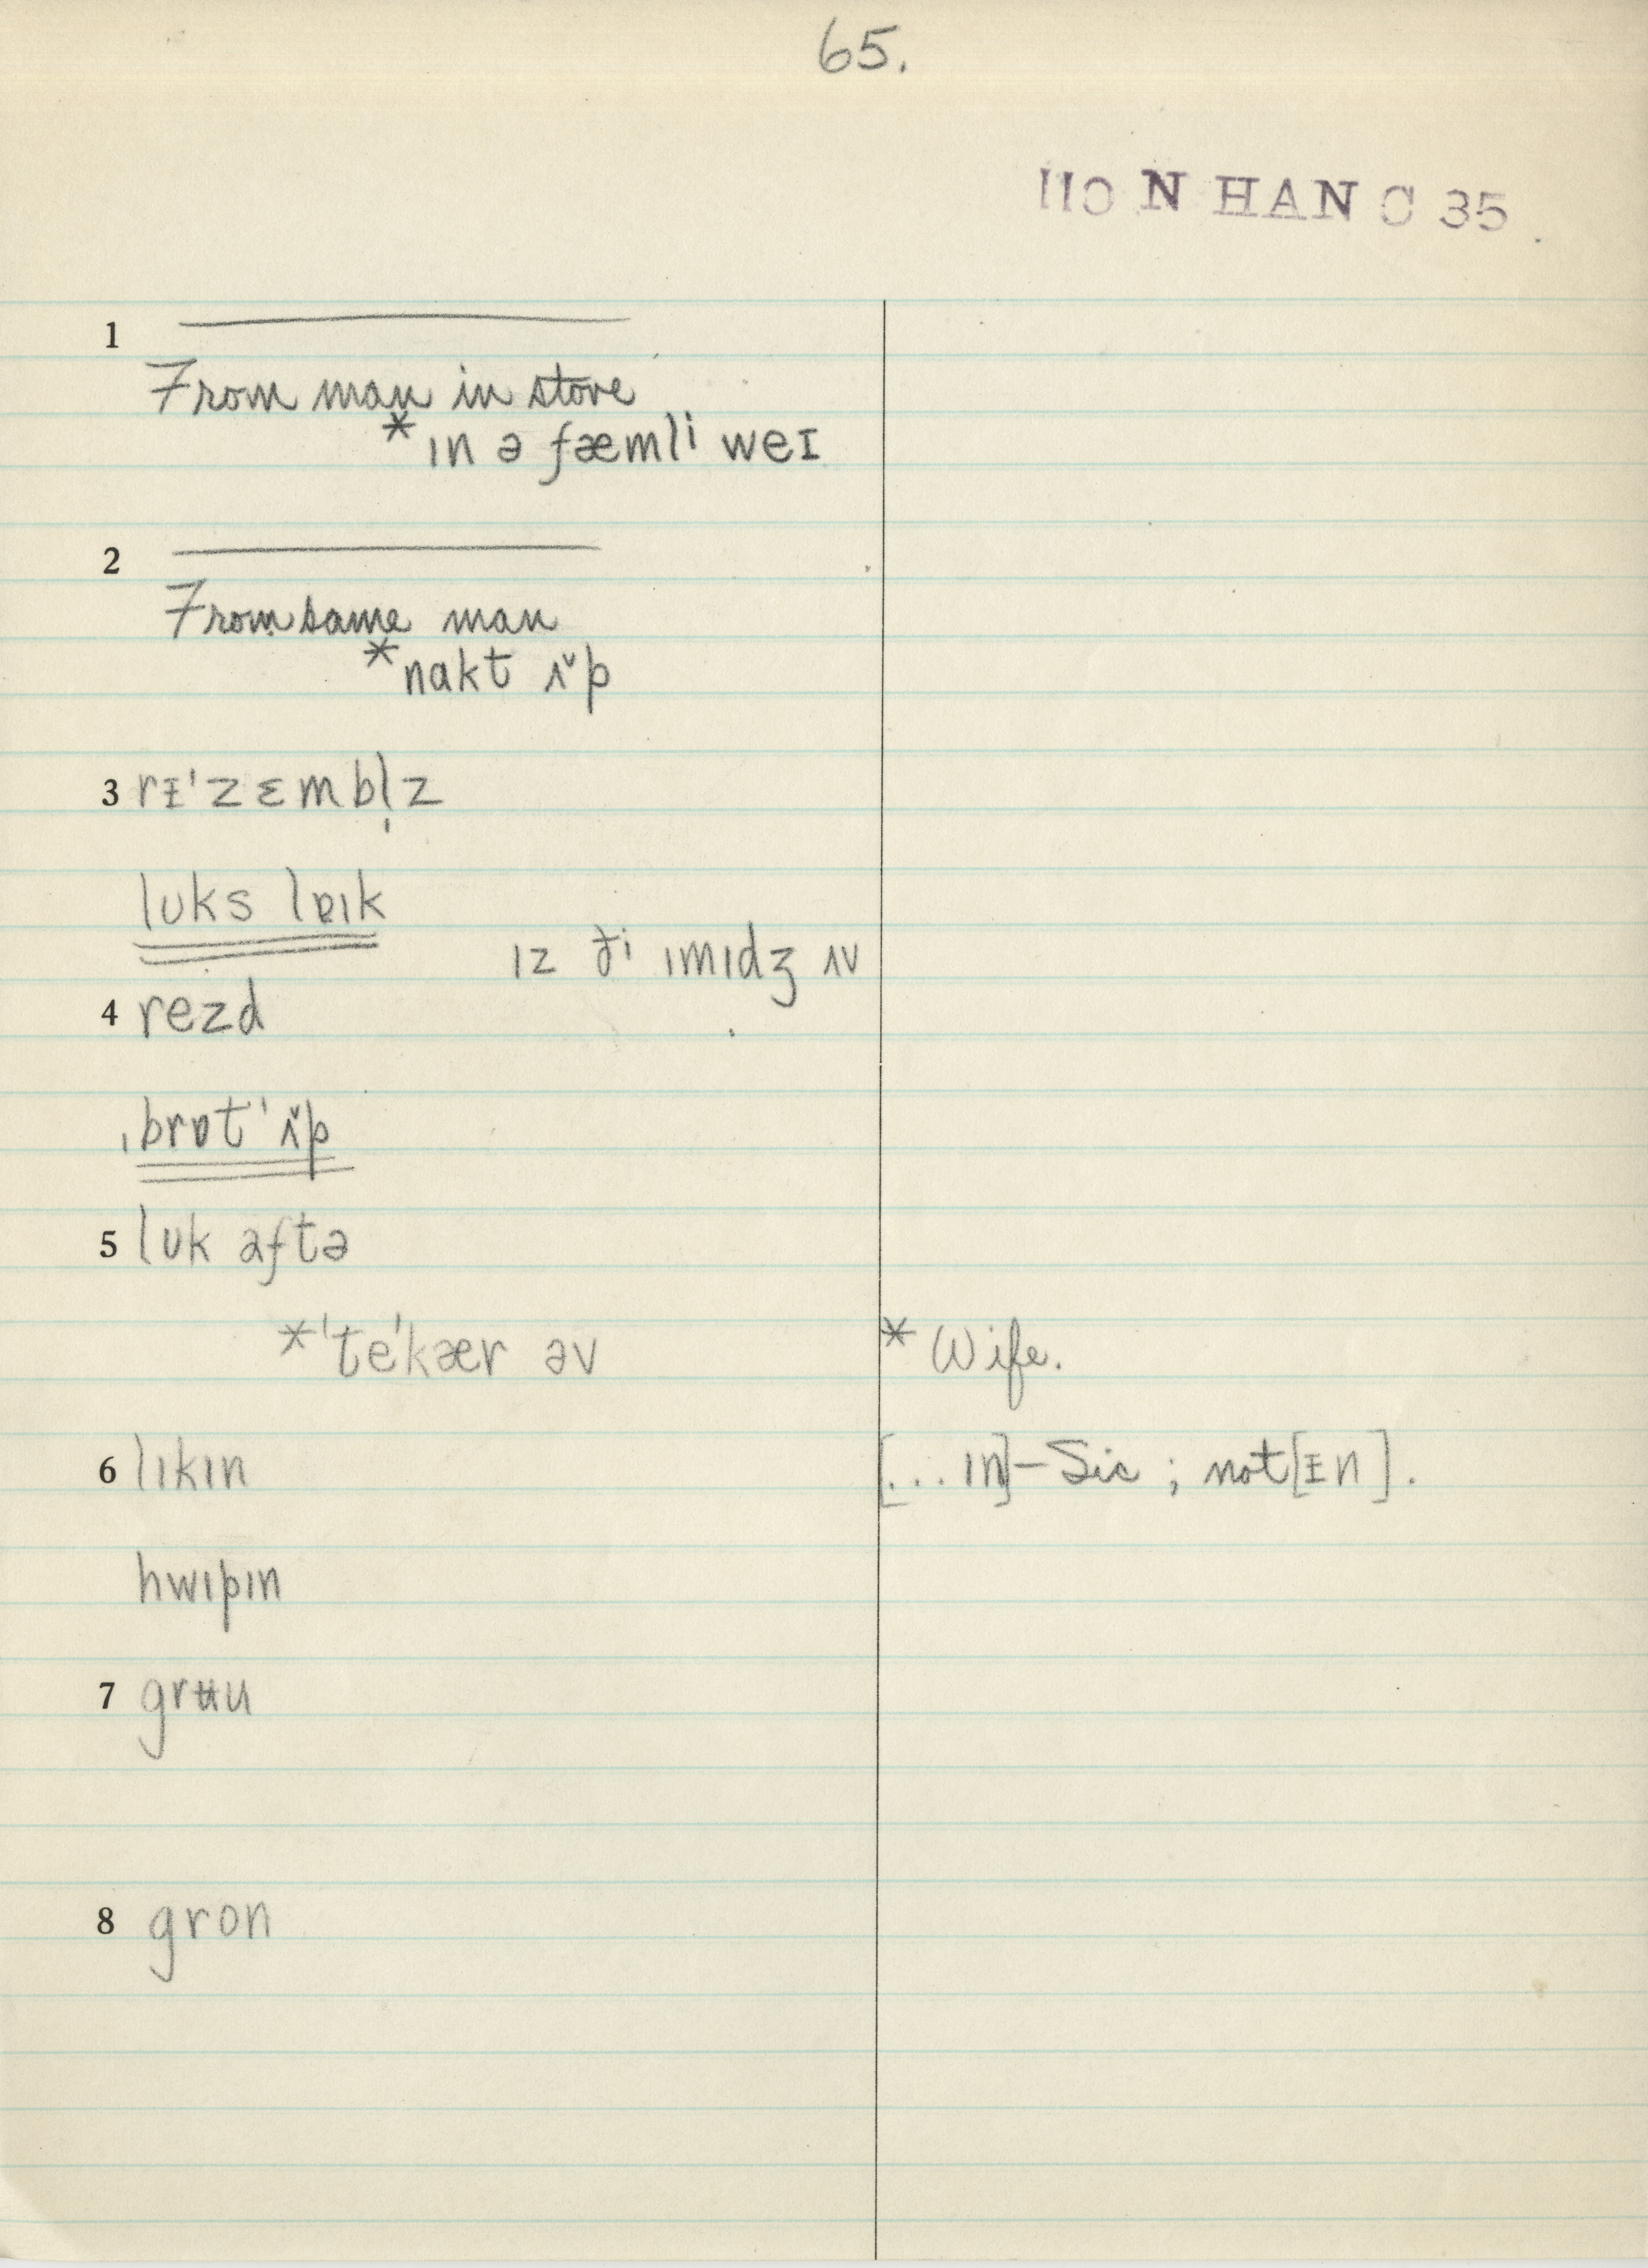 65.
N HAN C 35
1
From man in store
*ɪn ə fæmli weɪ
2
From same man
*nakt ʌ̌p
3 rᵻ'zɛmbl̩z
lʊks lɐɪk
ɪz ði ɪmɪdʒ ʌv
4 rezd
ˌbrɒt'ʌ̌p
5 lʊk aftə
*'te'kær əv
* Wife.
6 lɪkɪn
[...ɪn]–Sic; not [ᵻn].
hwɪpɪn
7 grʉu
8 gron